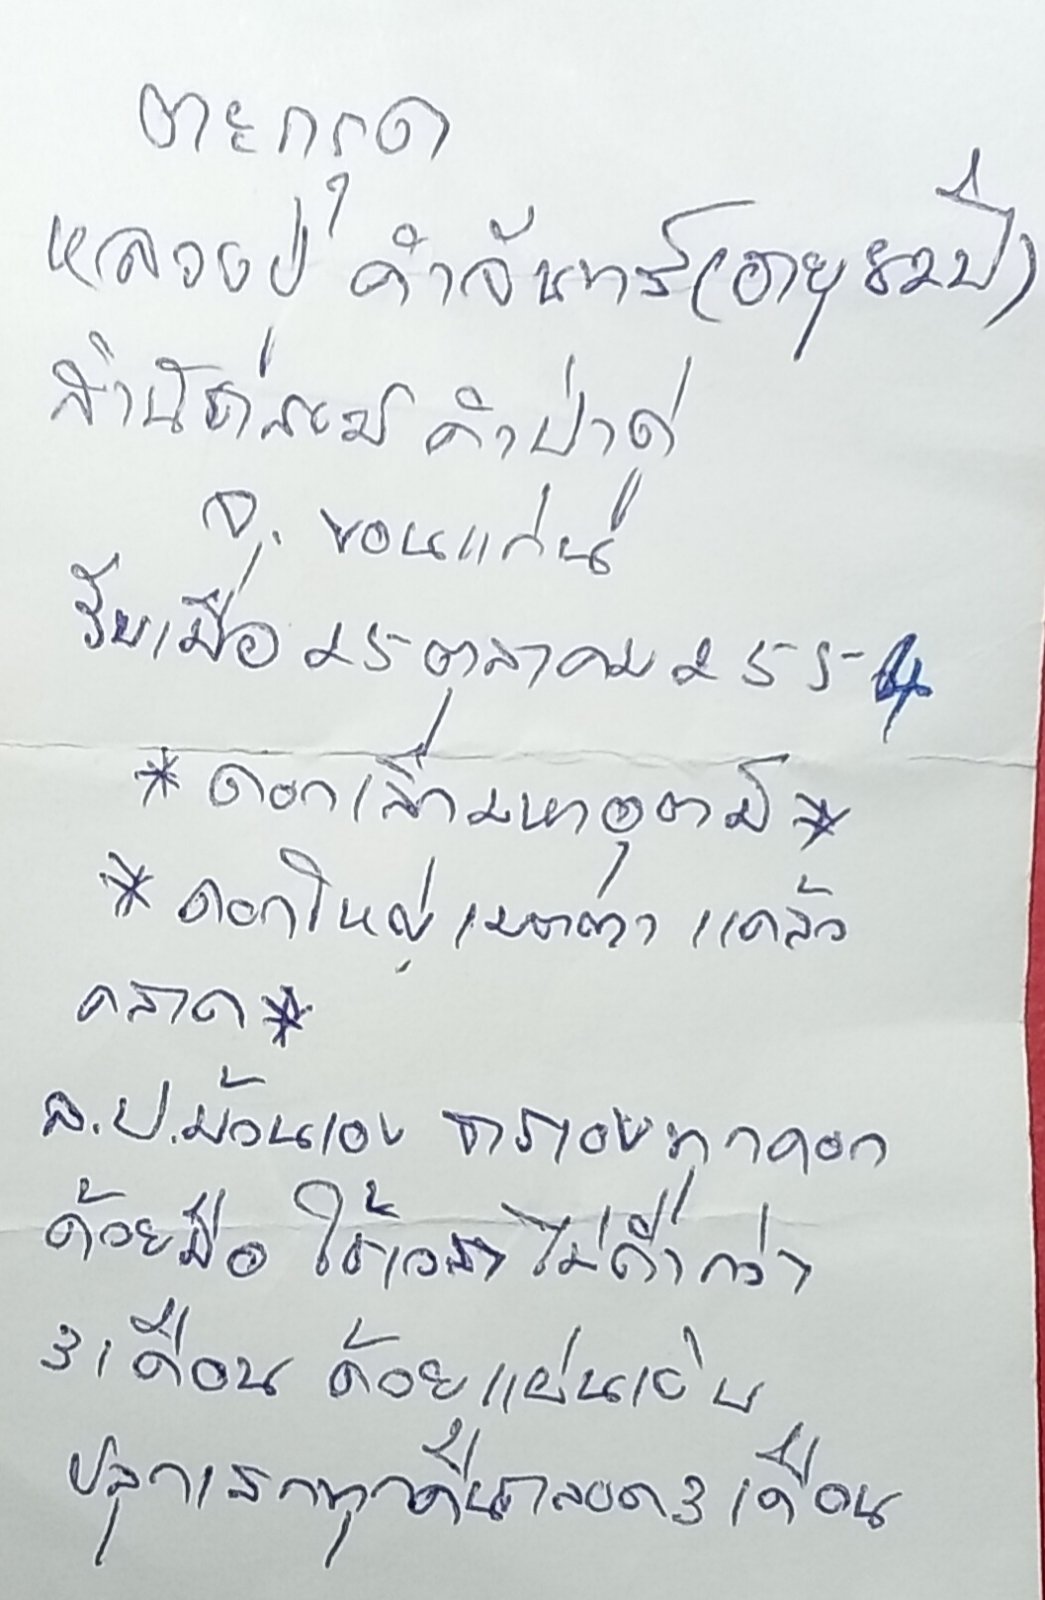 ตะกรุด
หลวงปู่ คำจันทร์ (อายุ 82 ปี)
สำนัก คำป่า
จ. ขอนแก่น
รับเมื่อ 25 ตุลาคม 2554
* ดอกเล็ก มหาอุตม์ *
* ดอกใหญ่ เมตตา แคล้ว
คลาด *
ล.ป. ม้วนเอง จารเองทุกดอก
ด้วยมือ ใช้เวลาไม่ต่ำกว่า
3 เดือน ด้วย
ปลุกเสกทุกคืนตลอด 3 เดือน